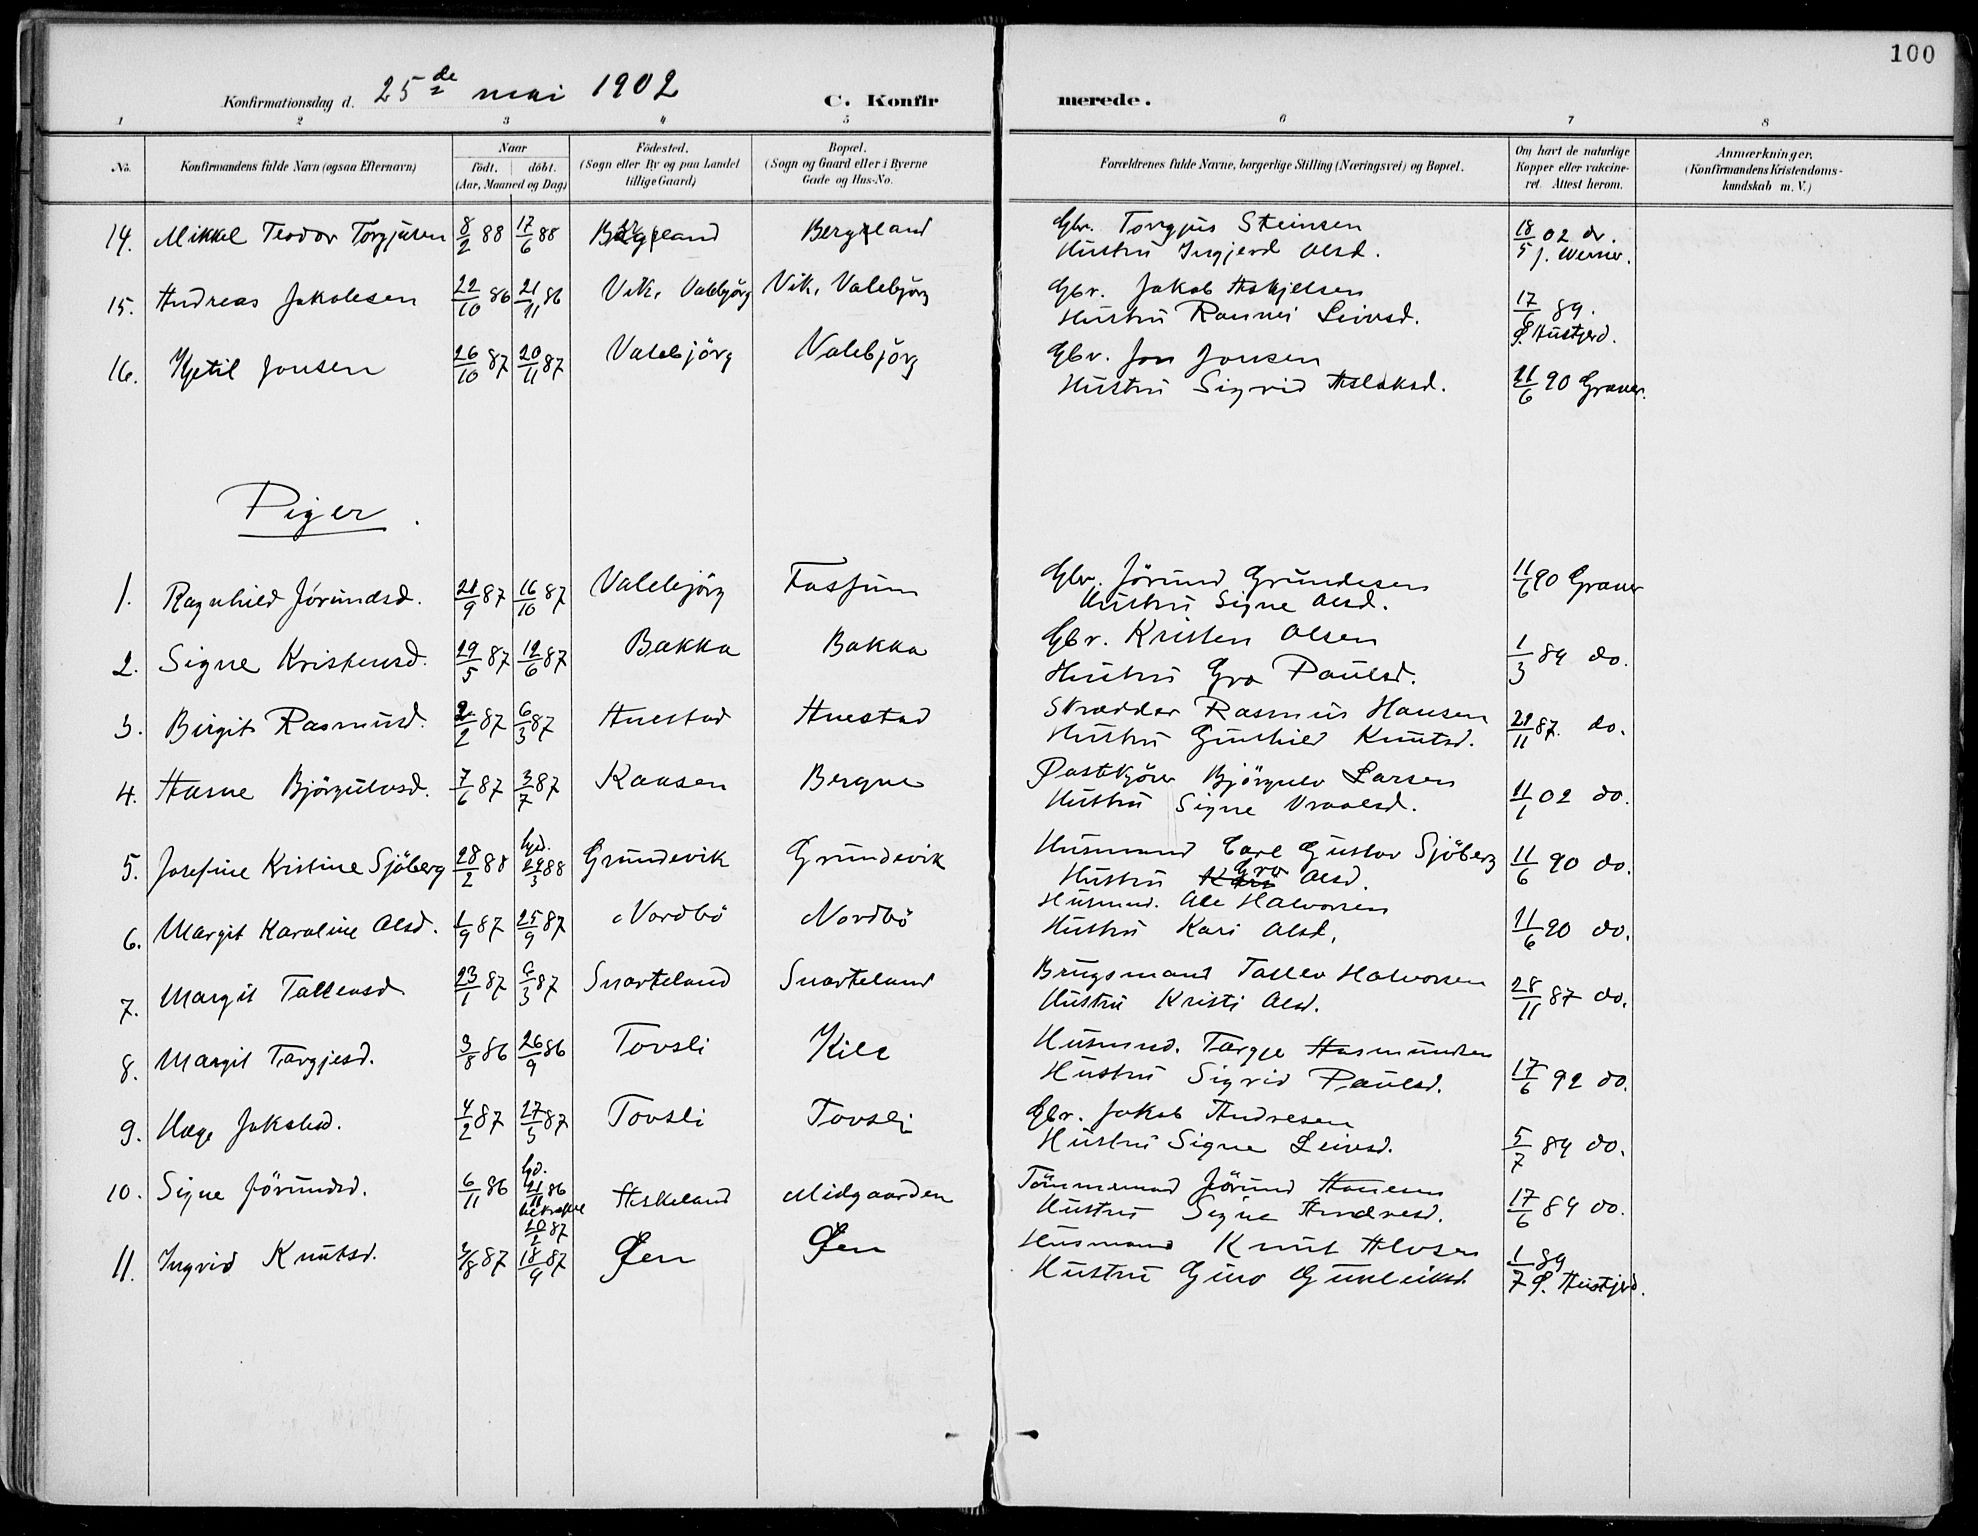 100
Konfirmationsdag d. 25de mai 1902
C. Konfirmerede.
1 2 3 4 5 6 7 8
No. Konfirmandens fulde Navn (ogsaa Efternavn) Naar födt. döbt. (Aar, Maaned og Dag) Födested. (Sogn eller By og paa Landet tillige Gaard) Bopæl. (Sogn og Gaard eller i Byerne Gade og Hus-No. Forældrenes fulde Navne, borgerlige Stilling (Næringsvei) og Bopæl. Om havt de naturlige Kopper eller vakcineret. Attest herom. Anmærkninger. (Konfirmandens Kristendomskundskab m. V.)
14. Mikkel Teodor Torgjusen 8/2 88 17/6 88 Bergeland Bergland Gbr. Torgjus Steinsen 18/5 02 dr.
Hustru Ingjerd Olsd. J. Werner.
15. Andreas Jakobsen 22/10 86 21/11 86 Vik, Valebjörg Vik, Valebjörg Gbr. Jakob Askjelsen 17/6 89.
Hustru Rannei Leivsd. Hustjerd.
16. Kjetil Jonsen 26/10 87 20/11 87 Valebjörg Valebjörg Gbr. Jon Jonsen
Hustru Sigrid Aslaksd. 21/6 90 Graver.
Piger.
1. Ragnhild Jörundsd. 21/9 87 16/10 87 Valebjörg Fossum Gbr. Jörund Grundesen 11/6 90 Graver
Hustru Signe Olsd.
2. Signe Kristensd. 29/5 87 12/6 87 Bakka Bakka Gbr. Kristen Olsen 1/3 89 do.
Hustru Gro Paulsd.
3. Birgit Rasmusd. 2/2 87 6/3 87 Anestad Anestad Skrædder Rasmus Hansen 21/11 87. do.
Hustru Gunhild Knutsd.
4. Aasne Björgulvsd. 7/6 87 3/7 87 Kaasen Bergne Postkjörer Björgulv Larsen 11/1 02 do.
Hustru Signe Vraalsd.
5. Josefine Kristine Sjöberg 28/2 88 hjd. 29/3 88 Grundevik Grundevik Husmand Carl Gustav Sjöberg 11/6 90 do.
Hustru Gro Olsd.
6. Margit Karoline Olsd. 1/9 87 25/9 87 Nordbö Nordbö Husmd. Ole Halvorsen 11/6 90 do.
Hustru Kari Olsd.
7. Margit Tallevsd. 23/1 87 6/3 87 Svarteland Svarteland Brugsmand Tallev Halvorsen 28/11 87 do.
Hustru Kristi Olsd.
8. Margit Targjesd. 3/8 86 26/9 86 Tovsli Kile Husmnd. Targje Aasmundsen 17/6 92 do.
Hustru Sigrid Paulsd.
9. Hæge Jakobsd. 4/2 87 27/3 87 Tovsli Tovsli Gbr. Jakob Andresen 5/7 89 do.
Hustru Signe Leivsd.
10. Signe Jörundsd. 6/11 86 hjd. 21/11 86 bekræftet 20/2 87 Askeland Midgaarden Tömmermand Jörund Hansen 17/6 89 do.
Hustru Signe Andresd.
11. Ingrid Knutsd. /8 87 18/9 87 Øen Øen Husmand Knut Alvsen 1/7 89
Hustru Guro Gunleiksd. Hustjerd.